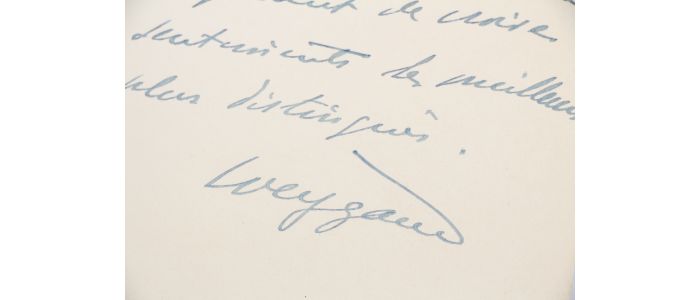 de croire
sentiments les meilleurs
plus distingués.
Weygand